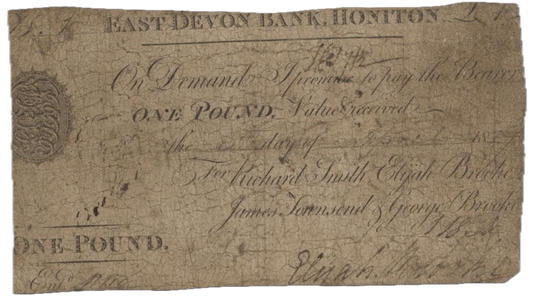 EAST DEVON BANK, HONITON
On Demand I promise to pay the Bearer
ONE POUND, Value received
the day of 18
For Richard Smith Elijah Brooke
James Townsend & George Brooke
ONE POUND.
Entd
Elijah Brooke